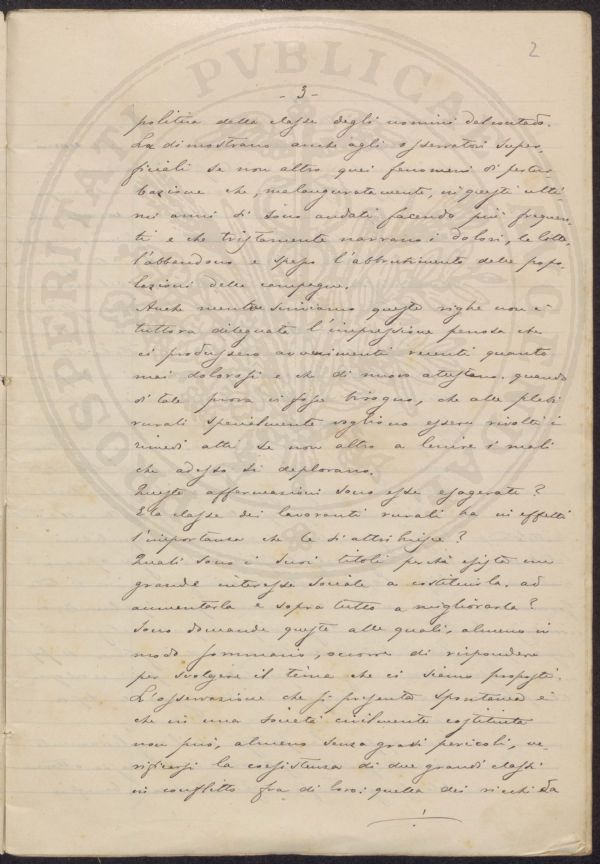 2
- 3 -
politica della classe degli uomini del contado.
La dimostrano anche agli osservatori super-
ficiali se non altro quei fenomeni di pertur-
bazione che, malauguratamente, in questi ulti
mi anni si sono andati facendo più frequen-
ti e che tristamente narrano i dolori, le lotte,
l'abbandono e spesso l'abbrutimento delle popo-
lazioni delle campagne.
Anche mentre scriviamo queste righe non è
tuttora dileguata l'impressione penosa che
ci produssero avvenimenti recenti quanto
mai dolorosi e che di nuovo attestano, quando
di tale prova vi fosse bisogno, che alle plebi
rurali specialmente vogliono essere rivolti i
rimedi atti se non altro a lenire i mali
che adesso si deplorano.
Queste affermazioni sono esse esagerate?
E la classe dei lavoranti rurali ha in effetti
l'importanza che le si attribuisce?
Quali sono i suoi titoli perchè esista un
grande interesse sociale a costituirla, ad
aumentarla e sopra tutto a migliorarla?
Sono domande queste alle quali, almeno in
modo sommario, occorre di rispondere
per svolgere il tema che ci siamo proposti.
L'osservazione che si presenta spontanea è
che in una società civilmente costituita
non può, almeno senza gravi pericoli, ve-
rificarsi la coesistenza di due grandi classi
in conflitto fra di loro: quella dei ricchi da
PROSPERITATI PVBLICAE